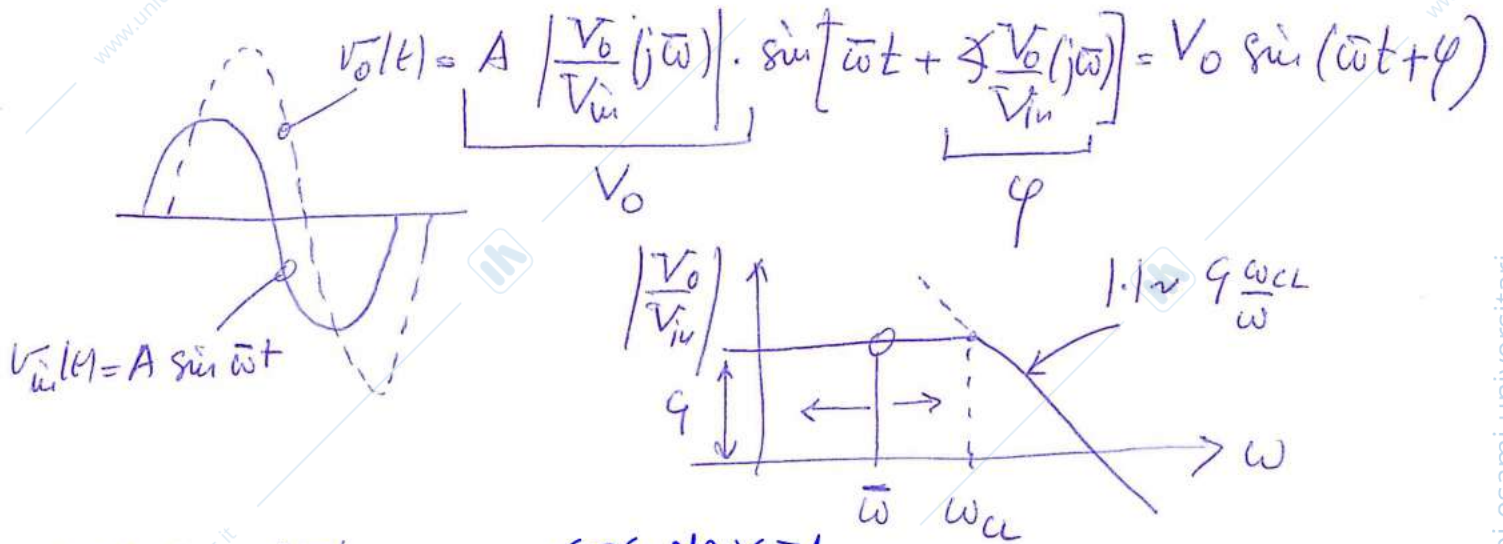 v₀(t) = A |V₀/V_in (jω̄)| · sin[ω̄t + ∡ V₀/V_in (jω̄)] = V₀ sin(ω̄t+φ)
V₀
φ
v_in(t) = A sin ω̄t
|V₀/V_in|
|·| ~ G ω_CL/ω
G
ω
ω̄
ω_CL